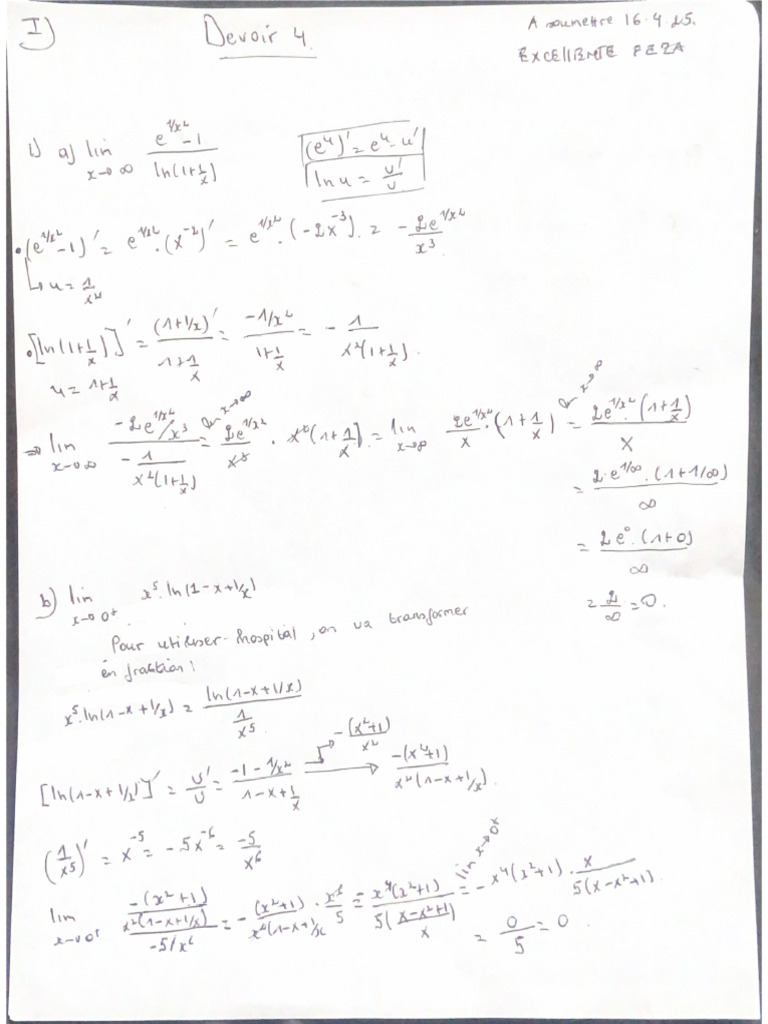 I)
Devoir 4.
A soumettre 16.4.25.
EXCEllENTE FEZA
1) a) lim x→∞ (e^{1/x²} - 1) / ln(1+1/x)
(e^u)' = e^u · u'
ln u = u'/u
• (e^{1/x²} - 1)' = e^{1/x²} · (x^{-2})' = e^{1/x²} · (-2x^{-3}). = - 2e^{1/x²} / x³
↳ u = 1/x²
• [ln(1+1/x)]' = (1+1/x)' / (1+1/x) = (-1/x²) / (1+1/x) = - 1 / (x²(1+1/x)).
u = 1+1/x
⇒ lim x→∞ (-2e^{1/x²}/x³) / (-1/(x²(1+1/x))) = lim x→∞ 2e^{1/x²}/x³ · x²(1+1/x) = lim x→∞ 2e^{1/x²}/x · (1+1/x) = lim x→∞ 2e^{1/x²} · (1+1/x) / x
= 2·e^{1/∞} · (1+1/∞) / ∞
= 2e^0 · (1+0) / ∞
= 2/∞ = 0.
b) lim x→0⁺ x⁵ · ln(1-x+1/x)
Pour utiliser l'hospital, on va transformer
en fraktion!
x⁵·ln(1-x+1/x) = ln(1-x+1/x) / (1/x⁵)
[ln(1-x+1/x)]' = u'/u = (-1-1/x²) / (1-x+1/x) → -(x²+1)/x² → -(x²+1) / (x²(1-x+1/x)).
(1/x⁵)' = x^{-5} = -5x^{-6} = -5/x⁶
lim x→0⁺ (-(x²+1) / (x²(1-x+1/x))) / (-5/x⁶) = -(x²+1) / (x²(1-x+1/x)) · x⁶/5 = x⁴(x²+1) / (5((x-x²+1)/x)) = lim x→0⁺ -x⁴(x²+1) · x / (5(x-x²+1)).
= 0/5 = 0